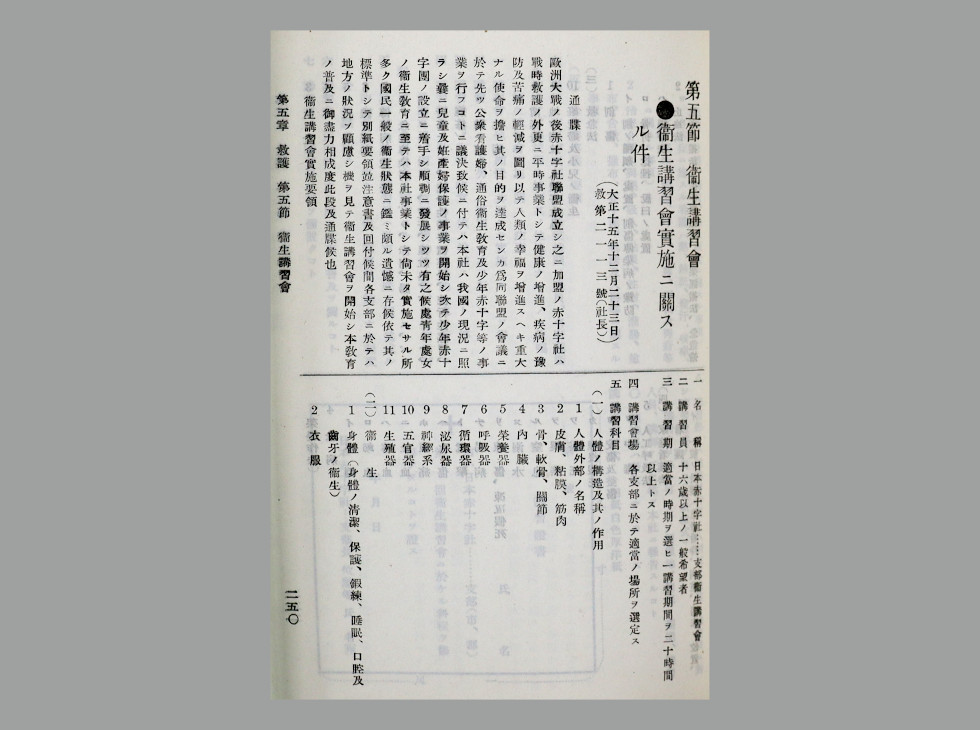 第五節　衞生講習會
●衞生講習會實施ニ關ス
ル件
（大正十五年十二月二十三日）
（救第二一一三號（社長））
通牒
歐洲大戰ノ後赤十字社聯盟成立シ之ニ加盟ノ赤十字社ハ
戰時救護ノ外更ニ平時事業トシテ健康ノ增進、疾病ノ豫
防及苦痛ノ輕減ヲ圖リ以テ人類ノ幸福ヲ增進スヘキ重大
ナル使命ヲ擔ヒ其ノ目的ヲ達成センカ爲同聯盟ノ會議ニ
於テ先ツ公衆看護婦、通俗衞生敎育及少年赤十字等ノ事
業ヲ行フコトニ議決致候ニ付テハ本社ハ我國ノ現況ニ照
ラシ曩ニ兒童及姙產婦保護ノ事業ヲ開始シ次テ少年赤十
字團ノ設立ニ着手シ順調ニ發展シツツ有之候處靑年處女
ノ衞生敎育ニ至テハ本社事業トシテ尙未タ實施セサル所
多ク國民一般ノ衞生狀態ニ鑑ミ頗ル遺憾ニ存候依テ其ノ
標準トシテ別紙要領竝注意書及回付候間各支部ニ於テハ
地方ノ狀況ヲ顧慮シ機ヲ見テ衞生講習會ヲ開始シ本敎育
ノ普及ニ御盡力相成度此段及通牒候也
衞生講習會實施要領
一　名　稱　日本赤十字社……支部衞生講習會
二　講習員　十六歲以上ノ一般希望者
三　講習期　適當ノ時期ヲ選ヒ一講習期間ヲ二十時間
以上トス
四　講習會場　各支部ニ於テ適當ノ場所ヲ選定ス
五　講習科目
（一）人體ノ構造及其ノ作用
1　人體外部ノ名稱
2　皮膚、粘膜、筋肉
3　骨、軟骨、關節
4　內臟
5　榮養器
6　呼吸器
7　循環器
8　泌尿器
9　神經系
10　五官器
11　生殖器
（二）衞　生
1　身體（身體ノ淸潔、保護、鍛練、睡眠、口腔及
齒牙ノ衞生）
2　衣　服
第五章　救護　第五節　衞生講習會
二五〇